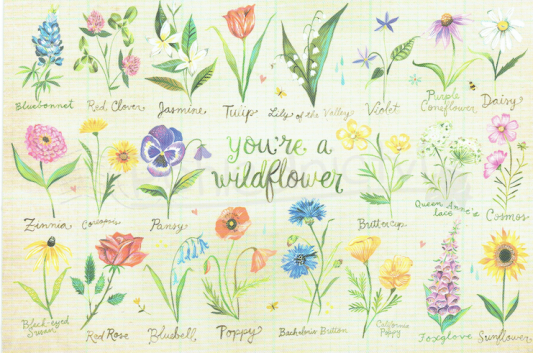 Bluebonnet Red Clover Jasmine Tulip Lily of the Valley Violet Purple Coneflower Daisy
you're a
wildflower
Zinnia Coreopsis Pansy Buttercup Queen Anne's Lace Cosmos
Black-eyed Susan Red Rose Bluebell Poppy Bachelors Button California Poppy Foxglove Sunflower